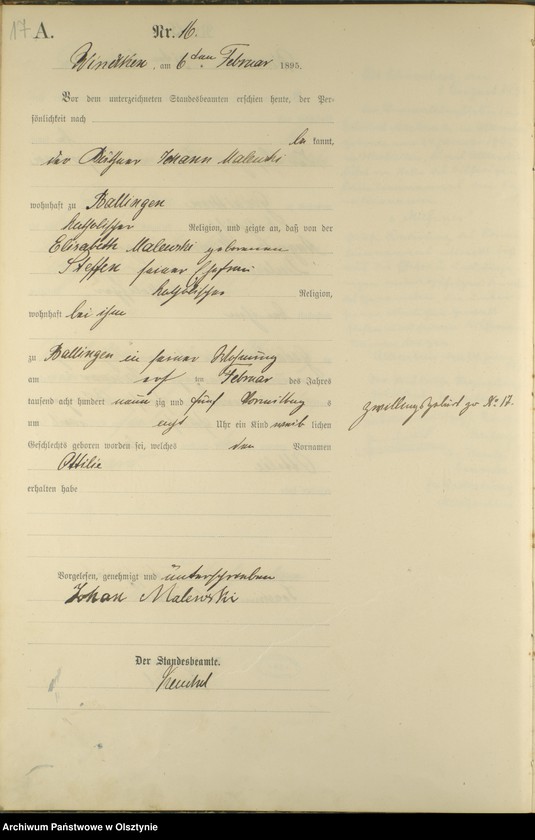 17 A.
Nr. 16.
am 6ten Februar 1895.
Vor dem unterzeichneten Standesbeamten erschien heute, der Per-
sönlichkeit nach
be kannt,
der Johann Malewski
wohnhaft zu Ballingen
katholischer Religion, und zeigte an, daß von der
Elisabeth Malewski geborenen
Steffen seiner Ehefrau
katholischer Religion,
wohnhaft bei ihm
zu Ballingen in seiner Wohnung
am ten Februar des Jahres
tausend acht hundert neun zig und fünf Vormittag s
um Uhr ein Kind weib lichen
Geschlechts geboren worden sei, welches den Vornamen
Ottilie
erhalten habe
Zwillingsgeburt zu No 17.
Vorgelesen, genehmigt und unterschrieben
Johan Malewski
Der Standesbeamte.
Archiwum Państwowe w Olsztynie